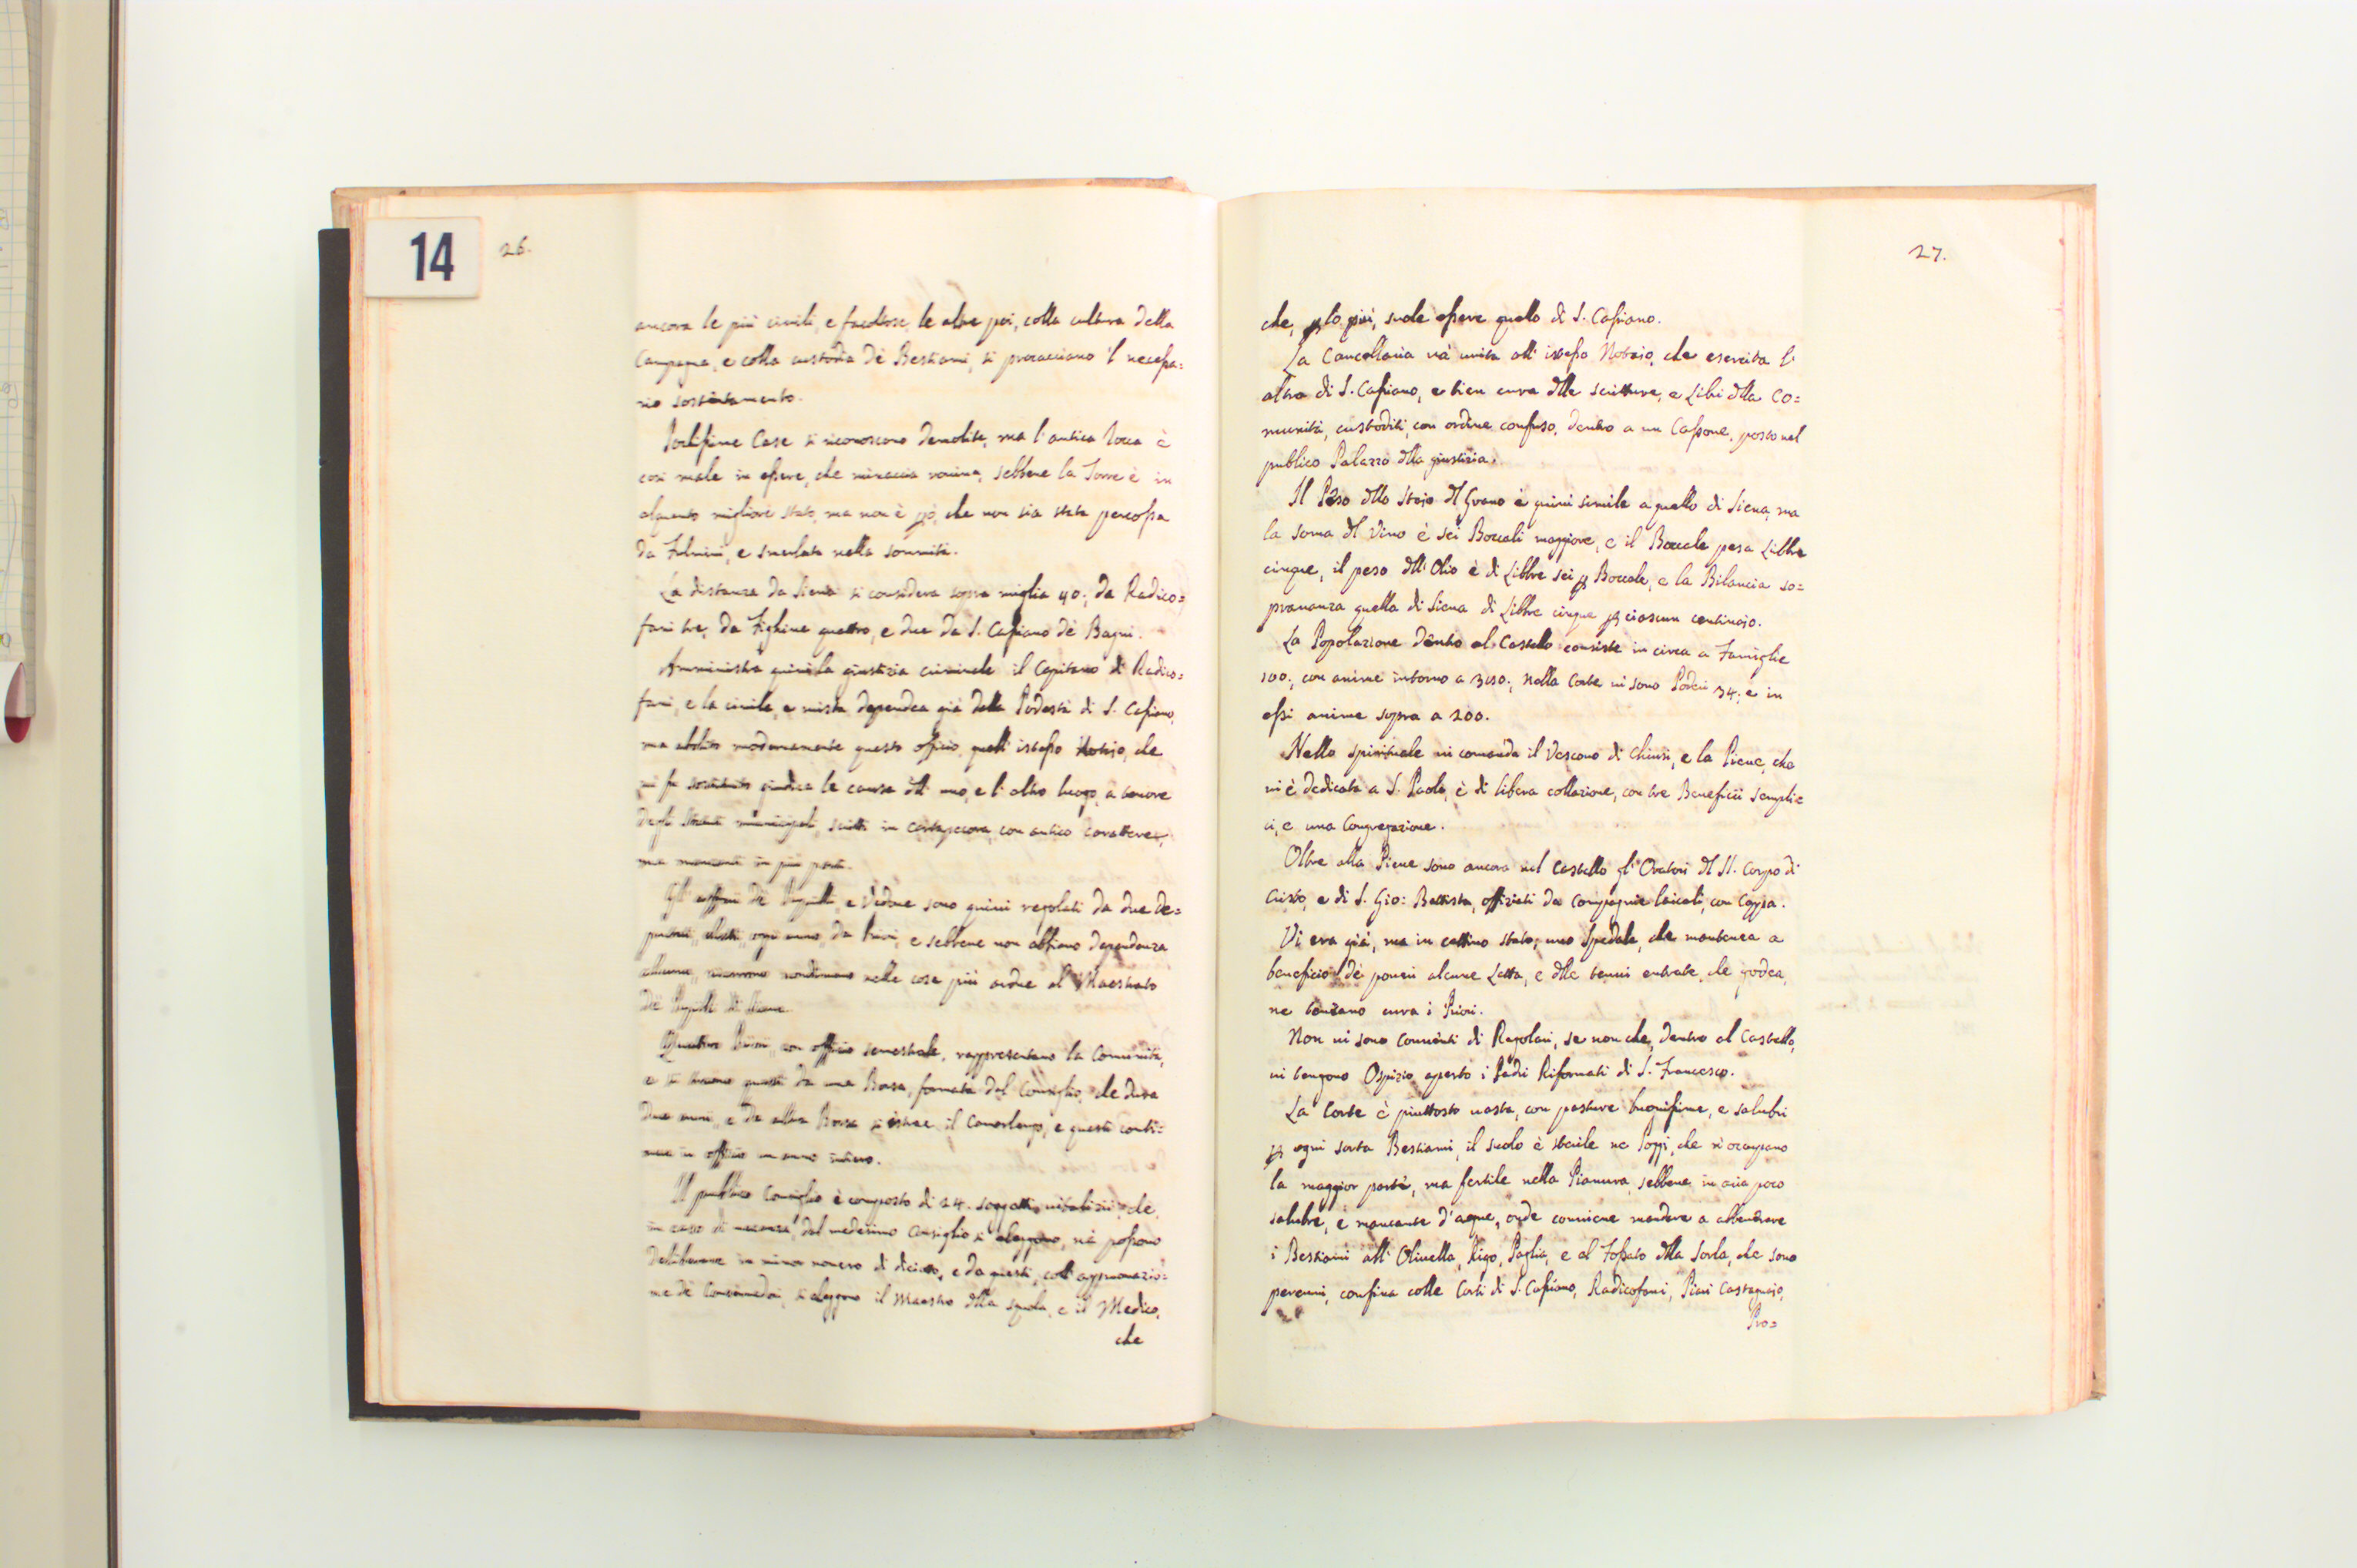 14
26.
ancora le più civili, e facoltose, le altre poi, colla cultura della
Campagna, e colla custodia de' Bestiami, si procacciano 'l necessa=
rio sostentamento.
Pochissime Case si riconoscono demolite, ma l'antica Rocca è
così male in essere, che minaccia rovina, sebbene la Torre è in
alquanto migliore stato, ma non è però, che non sia stata percossa
da Fulmini, e smerlata nella sommità.
La distanza da Siena si considera sopra miglia 40:, da Radico=
fani tre, da Fighine quattro, e due da S. Casciano de' Bagni.
Amministra quivi la giustizia criminale il Capitano di Radico=
fani, e la civile, e mista dependea già dalla Podestà di S. Casciano,
ma abolito modernamente questo offizio, quell'istesso Notaio, che
vi fu sostituito giudica le cause dell'uno, e l'altro luogo, a tenore
degli Statuti municipali, scritti in cartapecora, con antico carattere,
ma mancanti in più parti.
Gli affari de' Pupilli, e Vedove sono quivi regolati da due De=
putati, eletti, ogni anno, da Priori, e sebbene non abbiano dependenza
alcuna, ricorrono nondimeno nelle cose più ardue al Maestrato
de' Pupilli di Siena.
Quattro Priori, con offizio semestrale, rappresentano la Comunità,
e si traono questi da una Borsa, formata dal Consiglio, che dura
due anni, e da altra Borsa si estrae il Camarlengo, e questi conti=
nua in offizio un anno intiero.
Il publico Consiglio è composto di 24. soggetti, vitalizii, che,
in caso di vacanza, dal medesimo Consiglio si eleggono, nè possono
deliberare in minor novero di diciotto, e da questi, coll'approvazio=
ne de' Conservadori, si eleggono il Maestro dlla squola, e il Medico,
che
27.
che, p lo più, suole essere quello di S. Casciano.
La Cancellaria và unita all'istesso Notaio, che esercita l'
altra di S. Casciano, e tien cura dlle scritture, e Libri dlla Co=
munità, custoditi, con ordine confuso, dentro a un Cassone, posto nel
publico Palazzo dlla giustizia.
Il Peso dllo Staio dl Grano è quivi simile a quello di Siena, ma
la soma dl Vino è sei Boccali maggiore, e il Boccale pesa Libbre
cinque, il peso dll'Olio è di Libbre sei p Boccale, e la Bilancia so=
pravanza quella di Siena di Libbre cinque p ciascun centinajo.
La Popolazione dentro al Castello consiste in circa a Famiglie
100:, con anime intorno a 350:, nella Corte vi sono Poderi 34:, e in
essi anime sopra a 200.
Nello spirituale vi comanda il Vescovo di Chiusi, e la Pieve, che
vi è dedicata a S. Paolo, è di libera collazione, con tre Beneficii semplic
ci, e una Congregazione.
Oltre alla Pieve sono ancora nel Castello gl'Oratori dl SS. Corpo di
Cristo, e di S. Gio: Battista, offiziati da Compagnie laicali, con Cappa.
Vi era già, ma in cattivo stato, uno Spedale, che mantenea a
beneficio de' poveri alcune Letta, e dlle tenui entrate, che godea,
ne teneano cura i Priori.
Non vi sono Conventi di Regolari, se non che, dentro al Castello,
vi tengono Ospizio aperto i Padri Riformati di S. Francesco.
La Corte è piuttosto vasta, con pasture buonissime, e salubri
p ogni sorta Bestiami, il suolo è sterile ne' Poggi, che n'occupano
la maggior parte, ma fertile nella Pianura, sebbene in aria poco
salubre, e mancante d'acque, onde conviene mandare a abbeverare
i Bestiami all'Olivella, Rigo, Paglia, e al Fossato dlla Sorla, che sono
perenni, confina colle Corti di S. Casciano, Radicofani, Pian Castagnajo,
Pro=